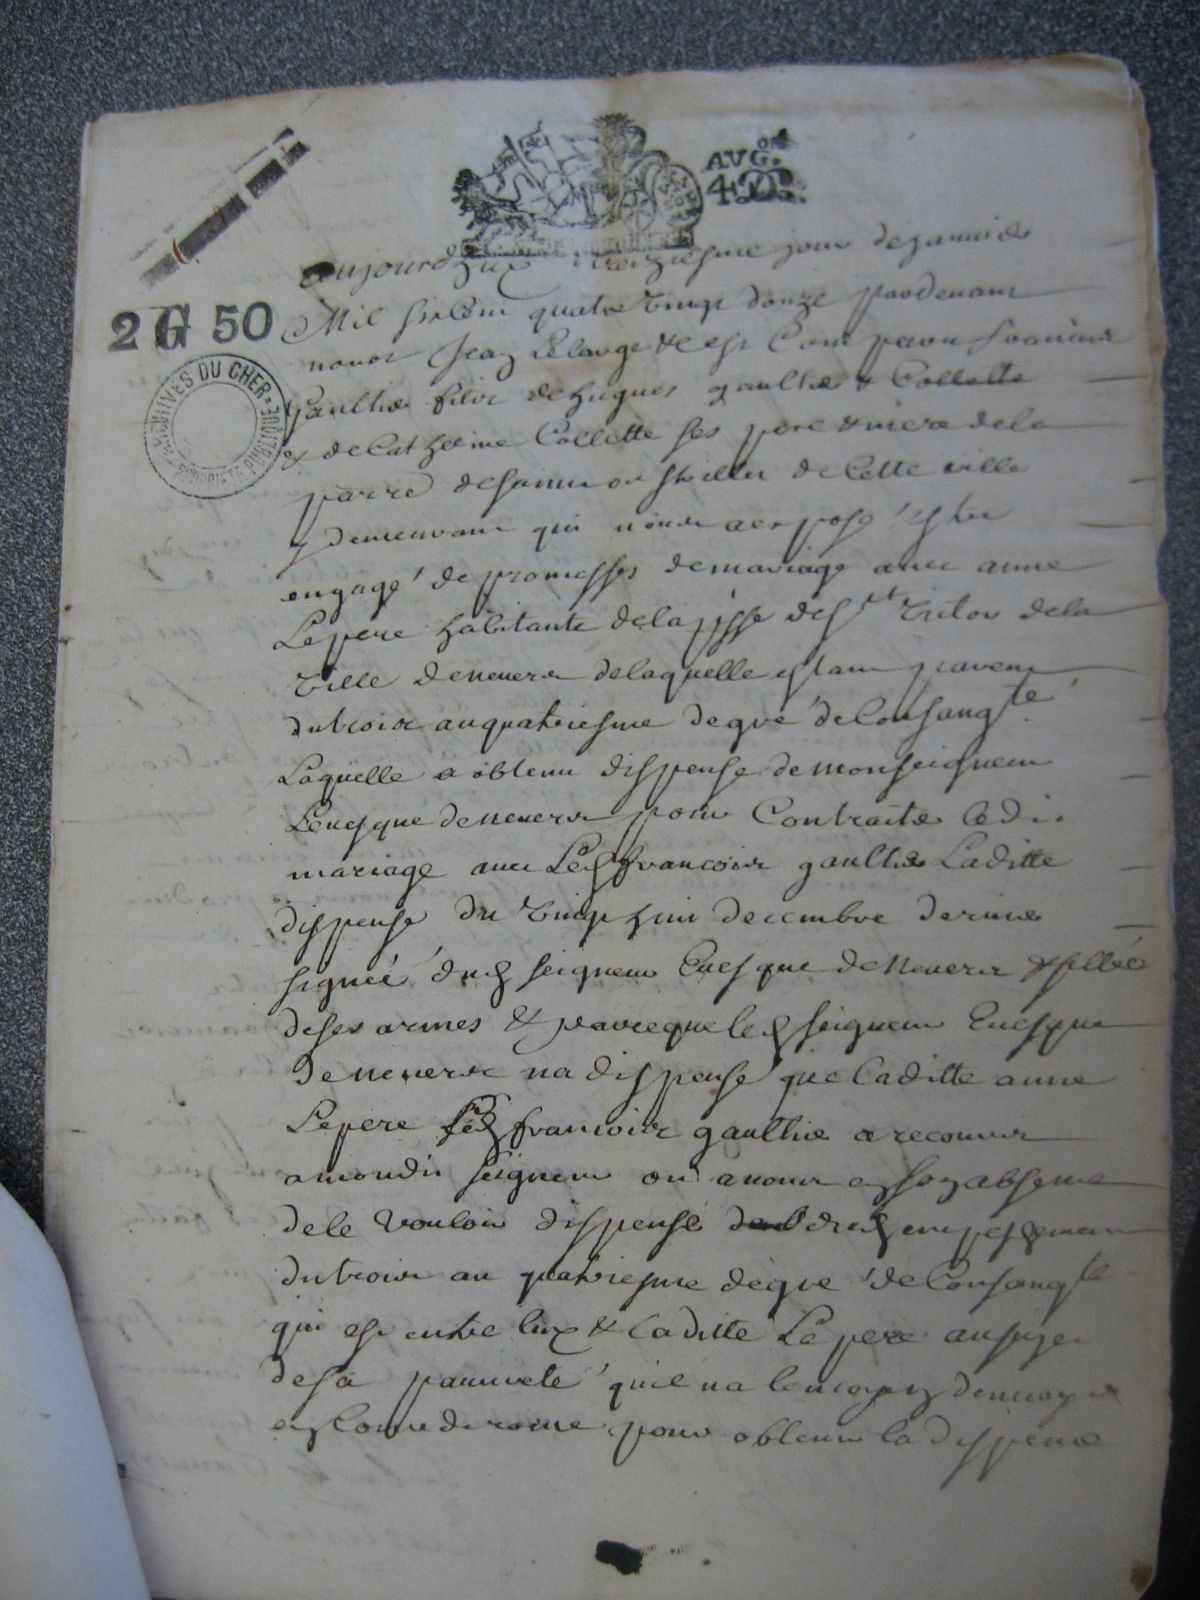 AVG.on
4 D.
aujourdhuy treiziesme jour de janvier
Mil six Cent quatre vingt douze pardevant
nous Jean Lelarge &c est Comparu francois
Gaultier filz de hugues gaultier & Collette
& de Catherine Collette ses pere & mere de la
parre de saint oustrillet de Cette ville
y demeurant qui nous a exposé estre
engagé de promesses de mariage avec anne
Lepere habitante de la psse de St victor de la
ville de nevers de laquelle estant parent
du trois au quatriesme degré de Consangte
Laquelle a obtenu dispense de monseigneur
Levesque de nevers pour Contracter ledi.
mariage avec Led francois gaultier Laditte
dispense du vingt huit decembre dernier
signée dud seigneur Evesque de Nevers & sellée
de ses armes & parceque led seigneur Evesque
de nevers na dispensé que laditte anne
Lepere led francois gaultier a recours
a mondit seigneur ou a nous en son absence
de le vouloir dispenser dud empeschement
du trois au quatriesme degré de Consangte
qui est entre luy & laditte Lepere au sujet
de sa pauvreté quil na le moyen denvoyer
en Cour de rome pour obtenir la dispense
2 G 50
ARCHIVES DU CHER
PROPRIÉTÉ PUBLIQUE